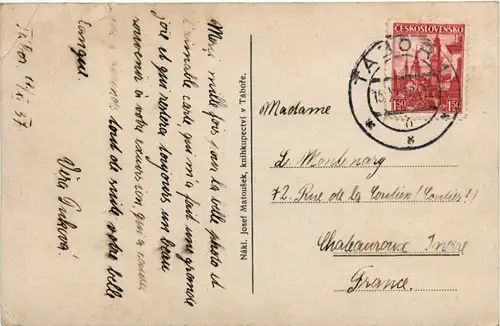 Merci mille fois pour la belle photo et
l'aimable carte, qui m'a fait une grande
joie et qui restera toujours un beau
souvenir à votre excursion, qui a
tout de suite, votre belle
langue.
Věra
Tábor 14/XI 37
Nákl. Josef Matoušek, knihkupectví v Táboře.
ČESKOSLOVENSKO
1·50 1·50
TÁBOR
Madame
Montenay
72. Rue de la
Chateauroux Indre
France.